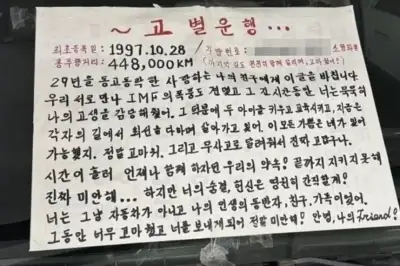 ~ 고별운행...
최초등록일: 1997. 10. 28 / 차량번호:
총주행거리: 448,000KM (마지막 길도 편경히 함께 달리며, 고마웠어!)
29년을 동고동락한 사랑하는 나의 친구에게 이 글을 바친다
우리 서로 만나 IMF의 폭풍도 견뎠고 그 긴 시간동안, 너는 묵묵히
나의 고생을 감당해줬어. 그 덕분에 두 아이를 키우고 교육시키고, 지금은
각자의 길에서 최선을 다하며 살아가고 있어. 이 모든 기쁨은 네가 있어
가능했지. 정말 고마워. 그리고 무사고로 달려줘서 진짜 고맙구나.
시간이 흘러 언제나 함께 하자던 우리의 약속! 끝까지 지키지 못해
진짜 미안해... 하지만 너의 숨결, 헌신은 영원히 간직할게!
너는 그냥 자동차가 아니고 나의 인생의 동반자, 친구, 가족이었어.
그동안 너무 고마웠고 너를 보내게 되어 정말 미안해! 안녕, 나의 Friend!